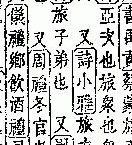 亞次也旅衆也
又詩小雅旅
旅子弟也 又
又周禮冬官
儀禮鄉飲酒禮